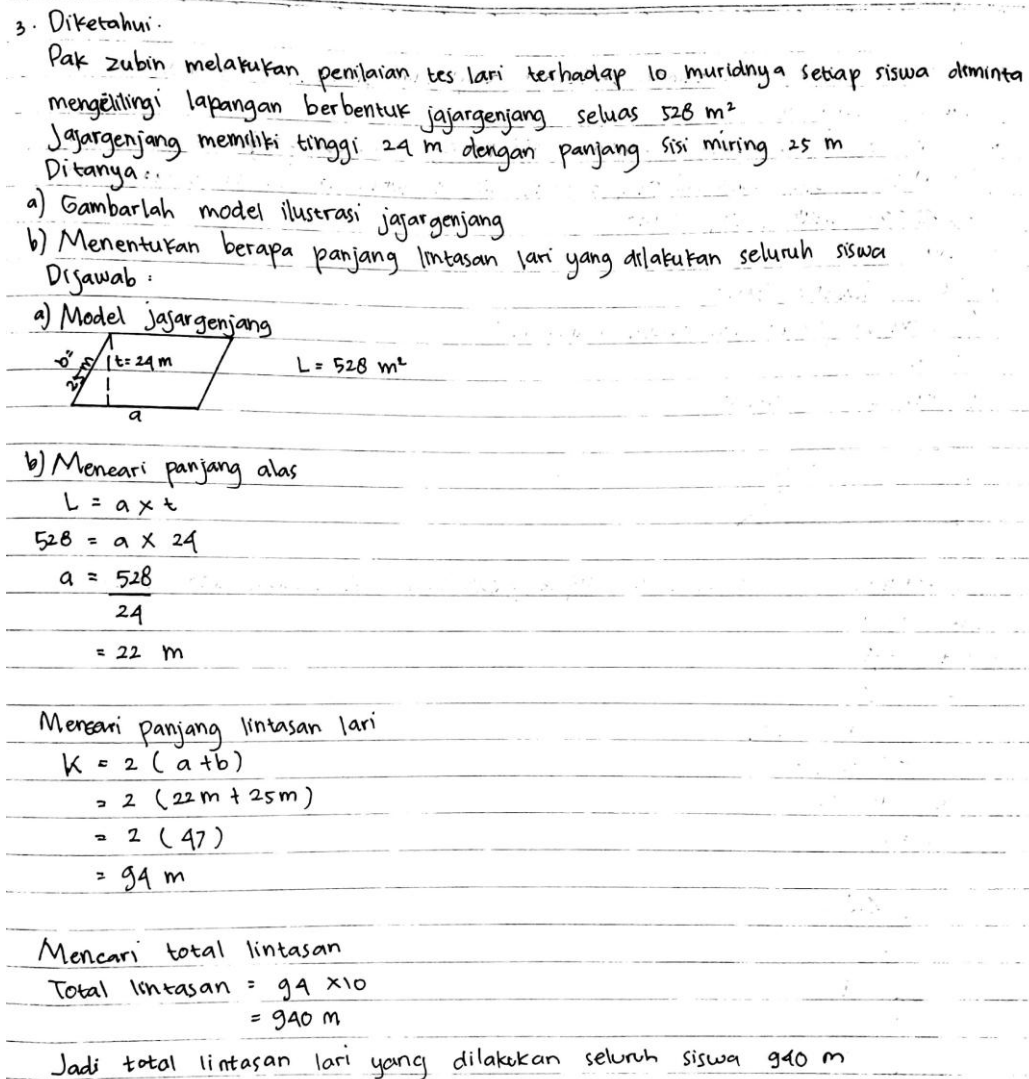 3. Diketahui.
Pak zubin melakukan penilaian tes lari terhadap 10 muridnya setiap siswa diminta
mengelilingi lapangan berbentuk jajargenjang seluas 528 m²
Jajargenjang memiliki tinggi 24 m dengan panjang sisi miring 25 m
Ditanya :.
a) Gambarlah model ilustrasi jajargenjang
b) Menentukan berapa panjang lintasan lari yang dilakukan seluruh siswa
Dijawab :
a) Model jajargenjang
b= 25 m t= 24 m L = 528 m²
a
b) Mencari panjang alas
L = a x t
528 = a x 24
a = 528
24
= 22 m
Mencari panjang lintasan lari
K = 2 ( a +b)
= 2 (22 m + 25 m)
= 2 ( 47 )
= 94 m
Mencari total lintasan
Total lintasan = 94 x10
= 940 m
Jadi total lintasan lari yang dilakukan seluruh siswa 940 m